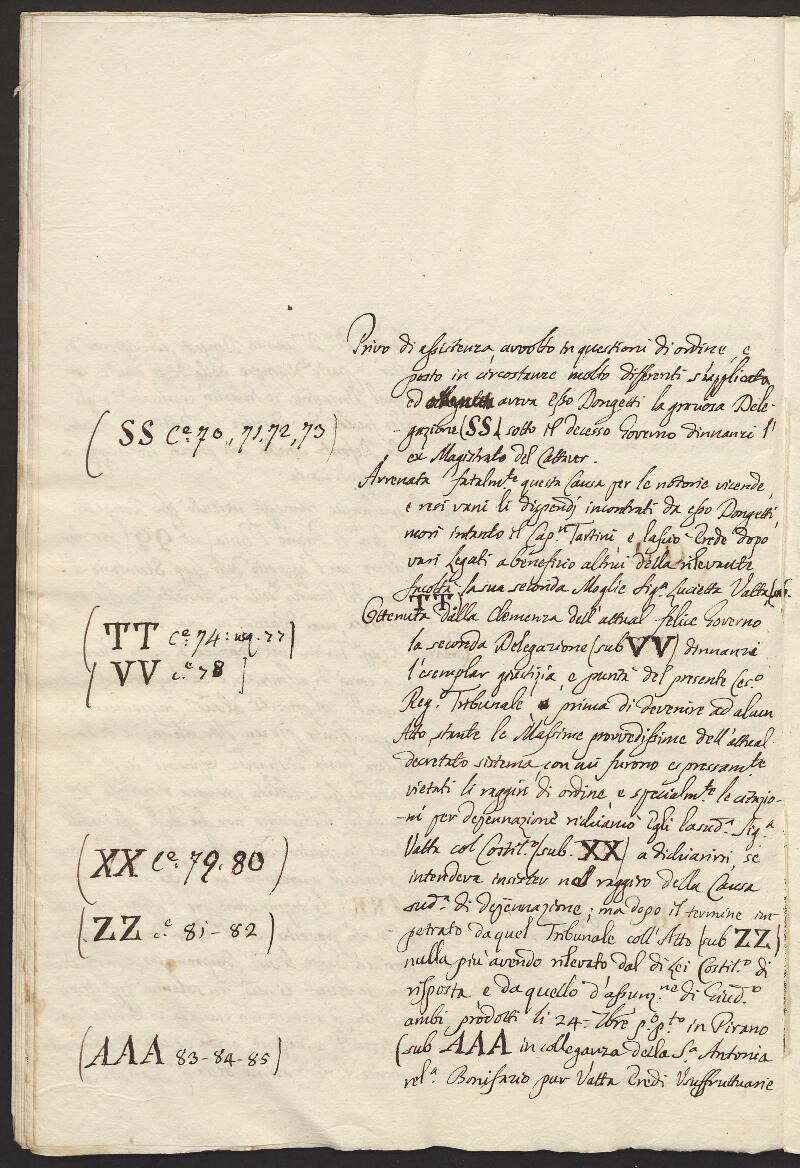 Privo di assistenza, avvolto in questioni di ordine, e
posto in circostanze molto differenti s'applicata
ed aveva esso Dongetti la gravosa Dele-
-gazione (SS) sotto il decesso Governo dinnanzi l'
ex Magistrato del Cattaver.
(SS Ce. 70., 71, 72, 73)
Arrenata fatalmte questa Causa per le notorie vicende,
e resi vani li dispendj incontrati da esso Dongetti,
morì intanto il Cap.n Tartini e lasciò Erede dopo
vari Legati a beneficio altrui della rilevante
facoltà la sua seconda Moglie Sig.a Lucietta Vatta (sub.
TT)
Ottenuta dalla Clemenza dell'attual felice Governo
la seconda Delegazione (sub VV) dinnanzi
l'esemplar giustizia, e purità del presente Ces.o
Reg.o Tribunale prima di devenire ad alcun
Atto, stante le Massime provvedissime dell'attual
decretato sistema, con cui furono espressamte
vietati li raggiri di ordine, e specialmte le citazio-
-ni per dejennazione richiamò Egli la sud.a Sig.a
Vatta col Costit.o (sub. XX) a dichiarirsi, se
intendeva insister nel raggiro della Causa
sud.a di dejennazione; ma dopo il termine im-
petrato da quel Tribunale coll'Atto (sub ZZ)
nulla più avendo rilevato dal di Lei Costit.o di
risposta e da quello d'assunz.ne di Giud.o
ambi prodotti li 24 = Xbre p.o p.to in Pirano
(sub AAA in colleganza della S.a Antonia
rel.a Bonifazio pur Vatta Eredi Usuffruttuarie
(TT Ce. 74: usq. 77)
(VV Ce. 78)
(XX Ce. 79. 80)
(ZZ Ce. 81-82)
(AAA 83-84-85)